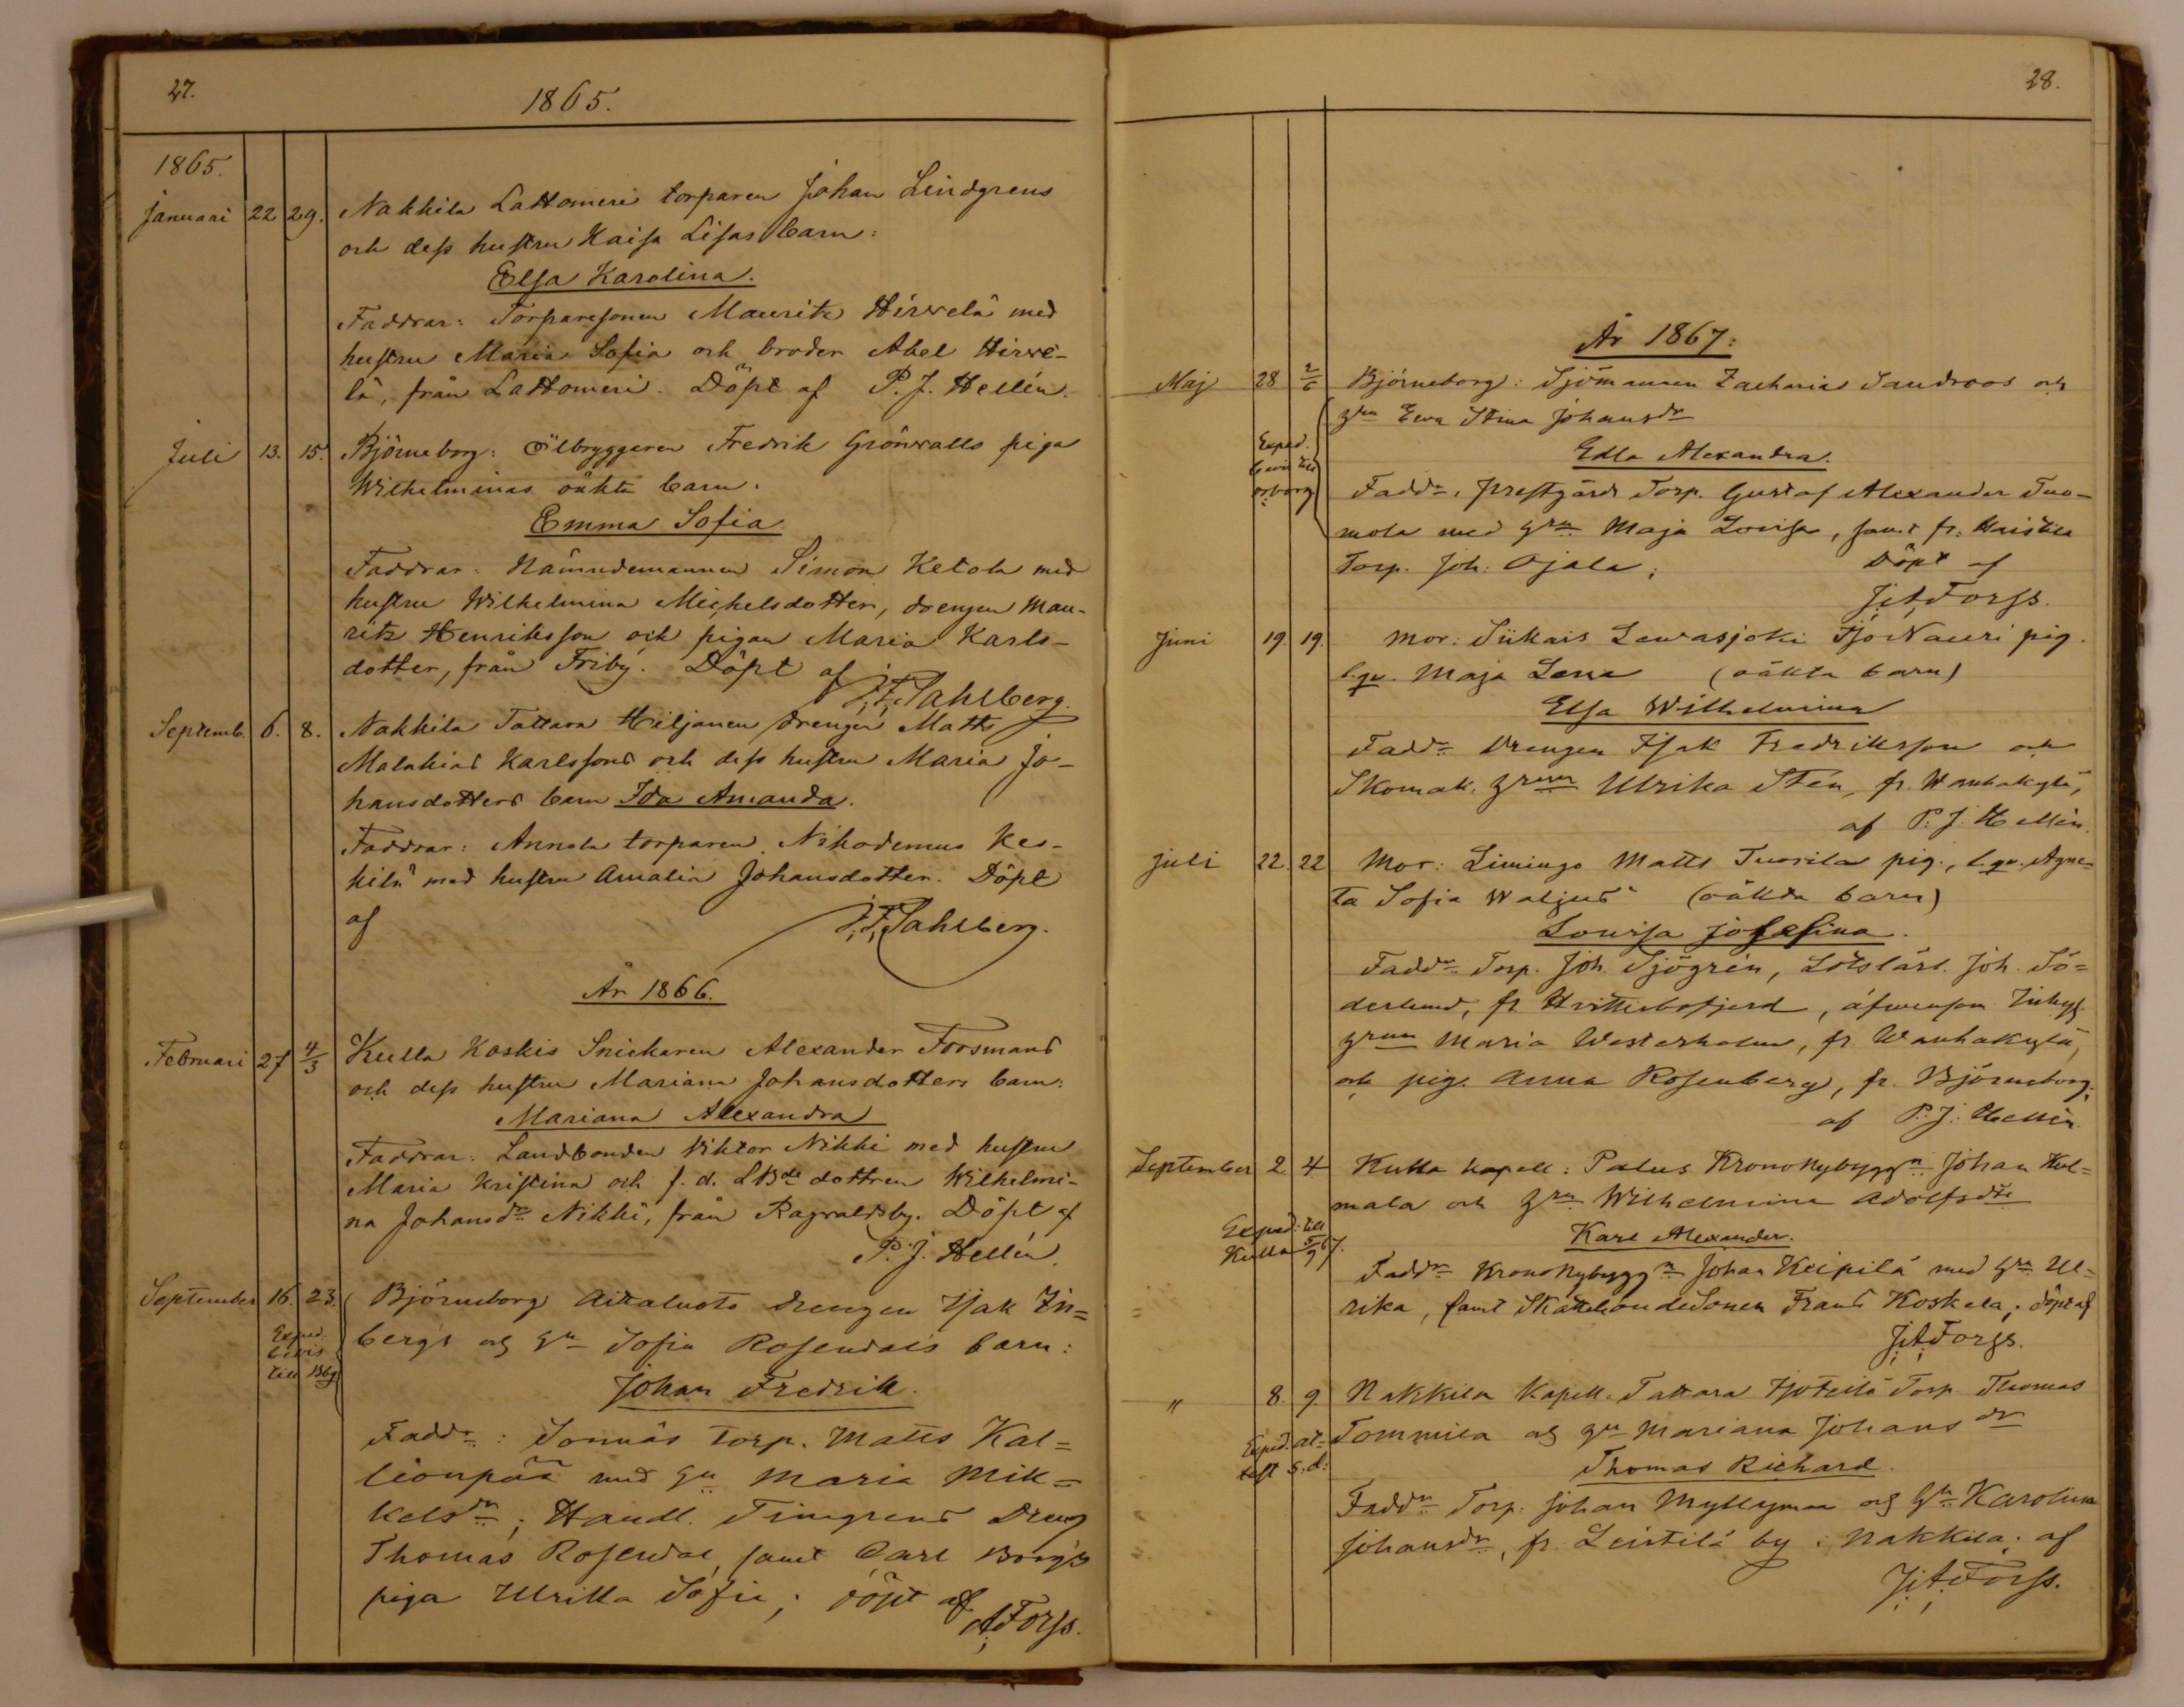 27.
1865.
1865.
Januari 22 29. Nakkila Lattomeri torparen Johan Lindgrens
och dess hustru Kaisa Lisas barn:
Elsa Karolina.
Faddrar: Torparesonen Mauritz Hirvelä med
hustru Maria Sofia och broder Abel Hirve-
lä, från Lattomeri. Döpt af P. J. Hellén.
Juli 13. 15. Björneborg: Ölbryggaren Fredrik Grönvalls piga
Wilhelminas oäkta barn.
Emma Sofia.
Faddrar: Nämndemannen Simon Ketola med
hustru Wilhelmina Michelsdotter, drengen Mau-
ritz Henriksson och pigan Maria Karls-
dotter, från Friby. Döpt af
J. F. Sahlberg.
Septemb. 6. 8. Nakkila Tattara Hiljanen drengen Matts
Malakias Karlssons och dess hustru Maria Jo-
hansdotters barn Ida Amanda.
Faddrar: Annola torparen Nikodemus Kes-
kilä med hustru Amalia Johansdotter. Döpt
af J. F. Sahlberg.
År 1866.
Februari 27 4/3 Kulla Koskis Snickaren Alexander Forsmans
och dess hustru Mariana Johansdotters barn:
Mariana Alexandra
Faddrar: Landbonden Viktor Nikki med hustru
Maria Kristina och f. d. LBde dottren Wilhelmi-
na Johansdr Nikki, från Ragvaldsby. Döpt af
P. J. Hellén.
September 16. 23. Björneborg Aittaluoto drengen Isak In=
bergs och Hu Sofia Rosendals barn:
Exped.
bevis
till Bbg
Johan Fredrik.
Faddr: Sonnäs Torp. Matts Kal=
lionpää med Hu Maria Mik=
kelsdr; Handl. Timgrens Dreng
Thomas Rosendal, samt Carl Borg's
piga Ulrika Sofia; döpt af
A Forss.
28.
År 1867:
Maj 28 2/6 Björneborg: Sjömannen Zacharias Sandroos och
Hru Ewa Stina Johansdr
Exped.
bevis till
Edla Alexandra.
Faddr. Prestgårds Torp. Gustaf Alexander Tuo-
mola med Hru Maja Lovisa, samt fr.
Torp. Joh. Ojala; Döpt af
J. A. Forss.
Juni 19. 19. Mor: Siikais Lewasjoki Nauri pig.
l. qv. Maja Lena (oäkta barn)
Elsa Wilhelmina
Faddr Drengen Isak Fredriksson och
Skomak. Hrun Ulrika Stén, fr. Wanhakylä,
af P. J. Hellén.
Juli 22. 22 Mor: Limingo Matts Tuorila pig., l. qv. Agne=
ta Sofia Waljus (oäkta barn)
Lovisa Josefina.
Faddr Torp. Joh. Sjögrén, Lotslärl. Joh. Sö=
derlund, fr Hvittisbofjerd, äfvensom Inhys
Hrun Maria Westerholm, fr. Wanhakylä,
och pig. Anna Rosenberg, fr. Björneborg;
af P. J. Hellén.
September 2. 4 Kulla kapell: Palus Krononybyggn Johan Kul=
mala och Hru Wilhelmina Adolfsdtr
Exped: till
Kulla 5/9 67.
Karl Alexander.
Faddr Krononybyggn Johan Keipilä med Hru Ul=
rika, samt Skattebondesonen Frans Koskela; döpt af
J. A. Forss.
" 8. 9. Nakkila Kapell. Tattara Torp. Thomas
Tommila och Hu Mariana Johansdr
Exped. at=
test s. d.
Thomas Richard.
Faddr Torp. Johan Myllymaa och Hu Karolina
Johansdr, fr. Leistilä by i Nakkila; af
J. A. Forss.